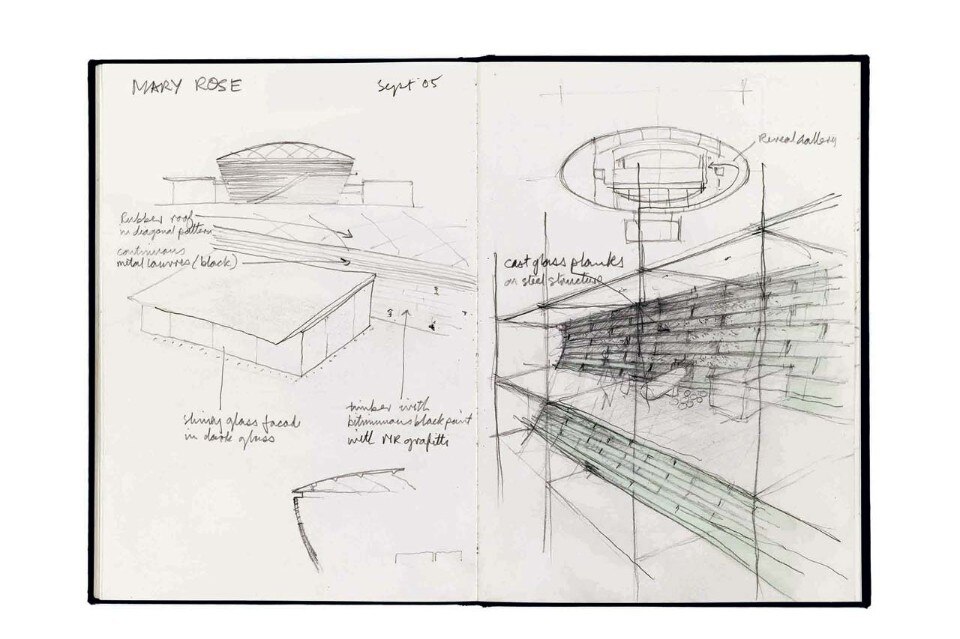 MARY ROSE
Sept 05
Rubber roof
in diagonal pattern
continuous
metal louvres (black)
shiny glass facad
in dark glass
timber with
bituminous black paint
with MR grafitti
Reveal Gallery
cast glass planks
on steel structure